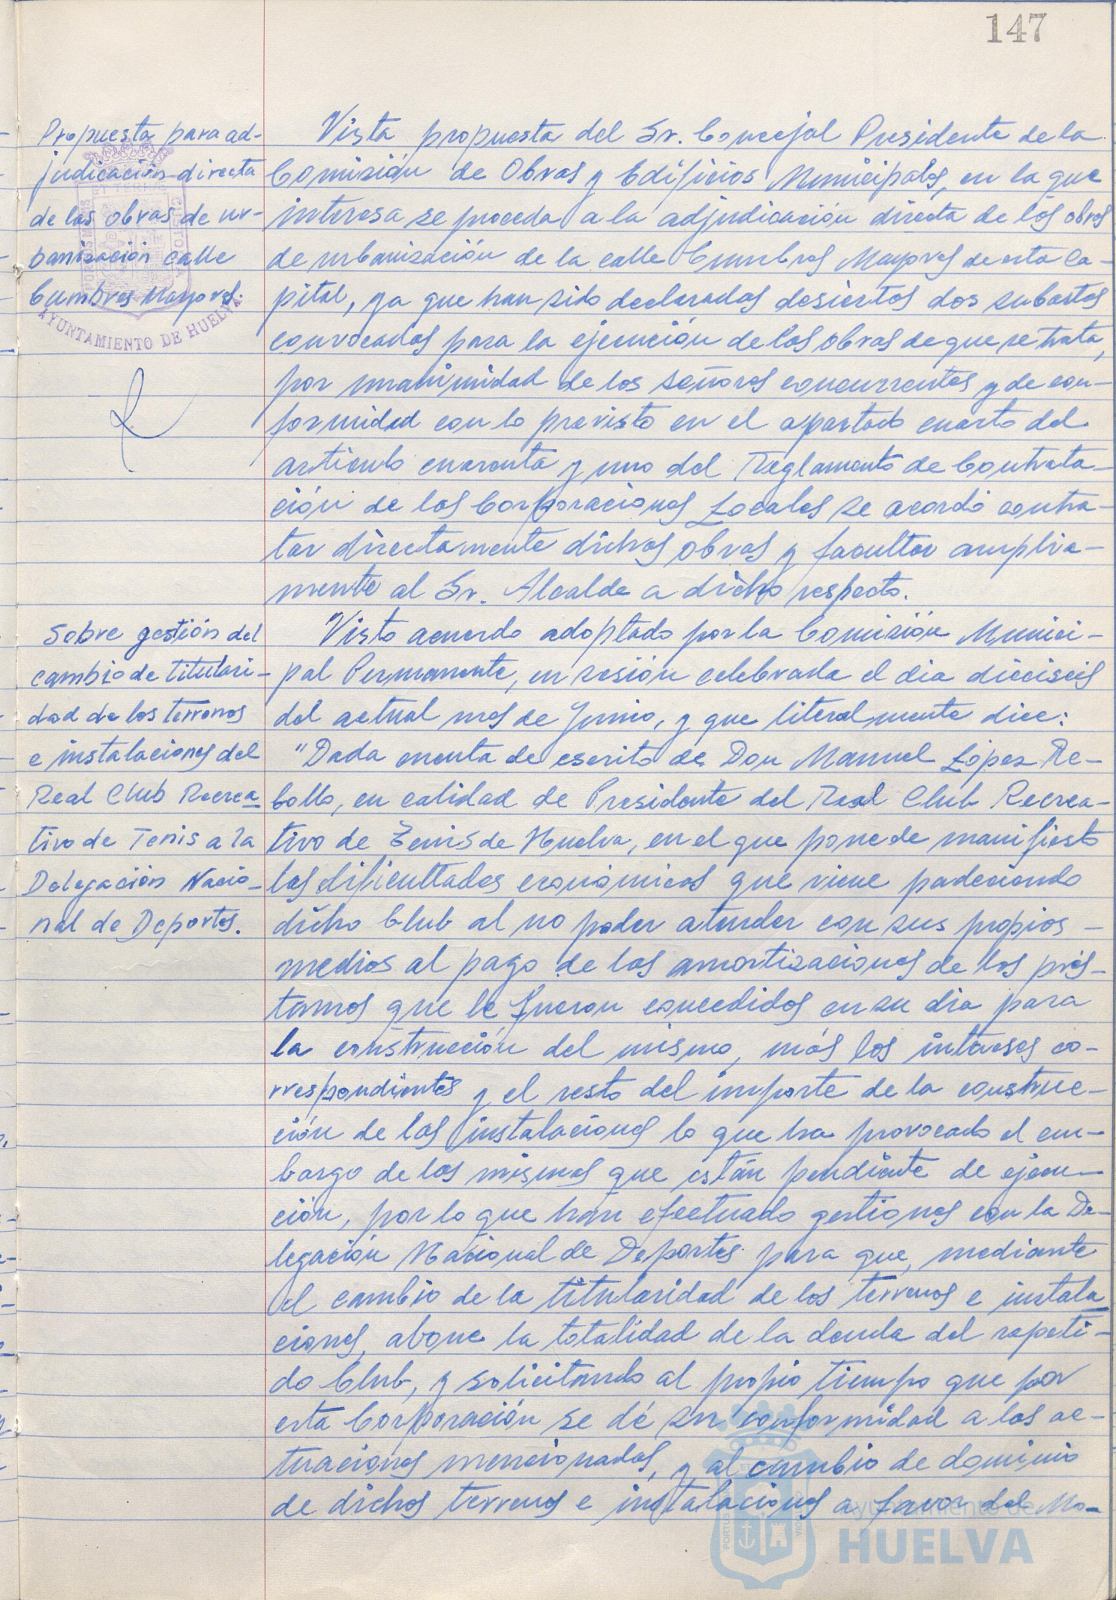 147
Propuesta para ad-
judicación directa
de las obras de ur-
banización calle
Cumbres Mayores.
AYUNTAMIENTO DE HUELVA
Vista propuesta del Sr. Concejal Presidente de la
Comisión de Obras y Edificios Municipales, en la que
interesa se proceda a la adjudicación directa de las obras
de urbanización de la calle Cumbres Mayores de esta Ca-
pital, ya que han sido declaradas desiertas dos subastas
convocadas para la ejecución de las obras de que se trata,
por unanimidad de los señores concurrentes y de con-
formidad con lo previsto en el apartado cuarto del
artículo cuarenta y uno del Reglamento de Contrata-
ción de las Corporaciones Locales se acordó contra-
tar directamente dichas obras y facultar amplia-
mente al Sr. Alcalde a dicho respecto.
Sobre gestión del
cambio de titulari-
dad de los terrenos
e instalaciones del
Real Club Recrea
tivo de Tenis a la
Delegación Nacio-
nal de Deportes.
Visto acuerdo adoptado por la Comisión Munici-
pal Permanente, en sesión celebrada el día dieciseis
del actual mes de Junio, y que literalmente dice:
"Dada cuenta de escrito de Don Manuel López Re-
bollo, en calidad de Presidente del Real Club Recrea-
tivo de Tenis de Huelva, en el que pone de manifiesto
las dificultades económicas que viene padeciendo
dicho Club al no poder atender con sus propios -
medios al pago de las amortizaciones de los prés-
tamos que le fueron concedidos en su día para
la construcción del mismo, más los intereses co-
rrespondientes y el resto del importe de la construc-
ción de las instalaciones lo que ha provocado el em-
bargo de los mismos que están pendiente de ejecu-
ción, por lo que han efectuado gestiones con la De-
legación Nacional de Deportes para que, mediante
el cambio de la titularidad de los terrenos e instala
ciones, abone la totalidad de la deuda del repeti-
do Club, y solicitando al propio tiempo que por
esta Corporación se dé su conformidad a las ac-
tuaciones mencionadas, y al cambio de dominio
de dichos terrenos e instalaciones a favor del Mo-
Ayuntamiento de
HUELVA